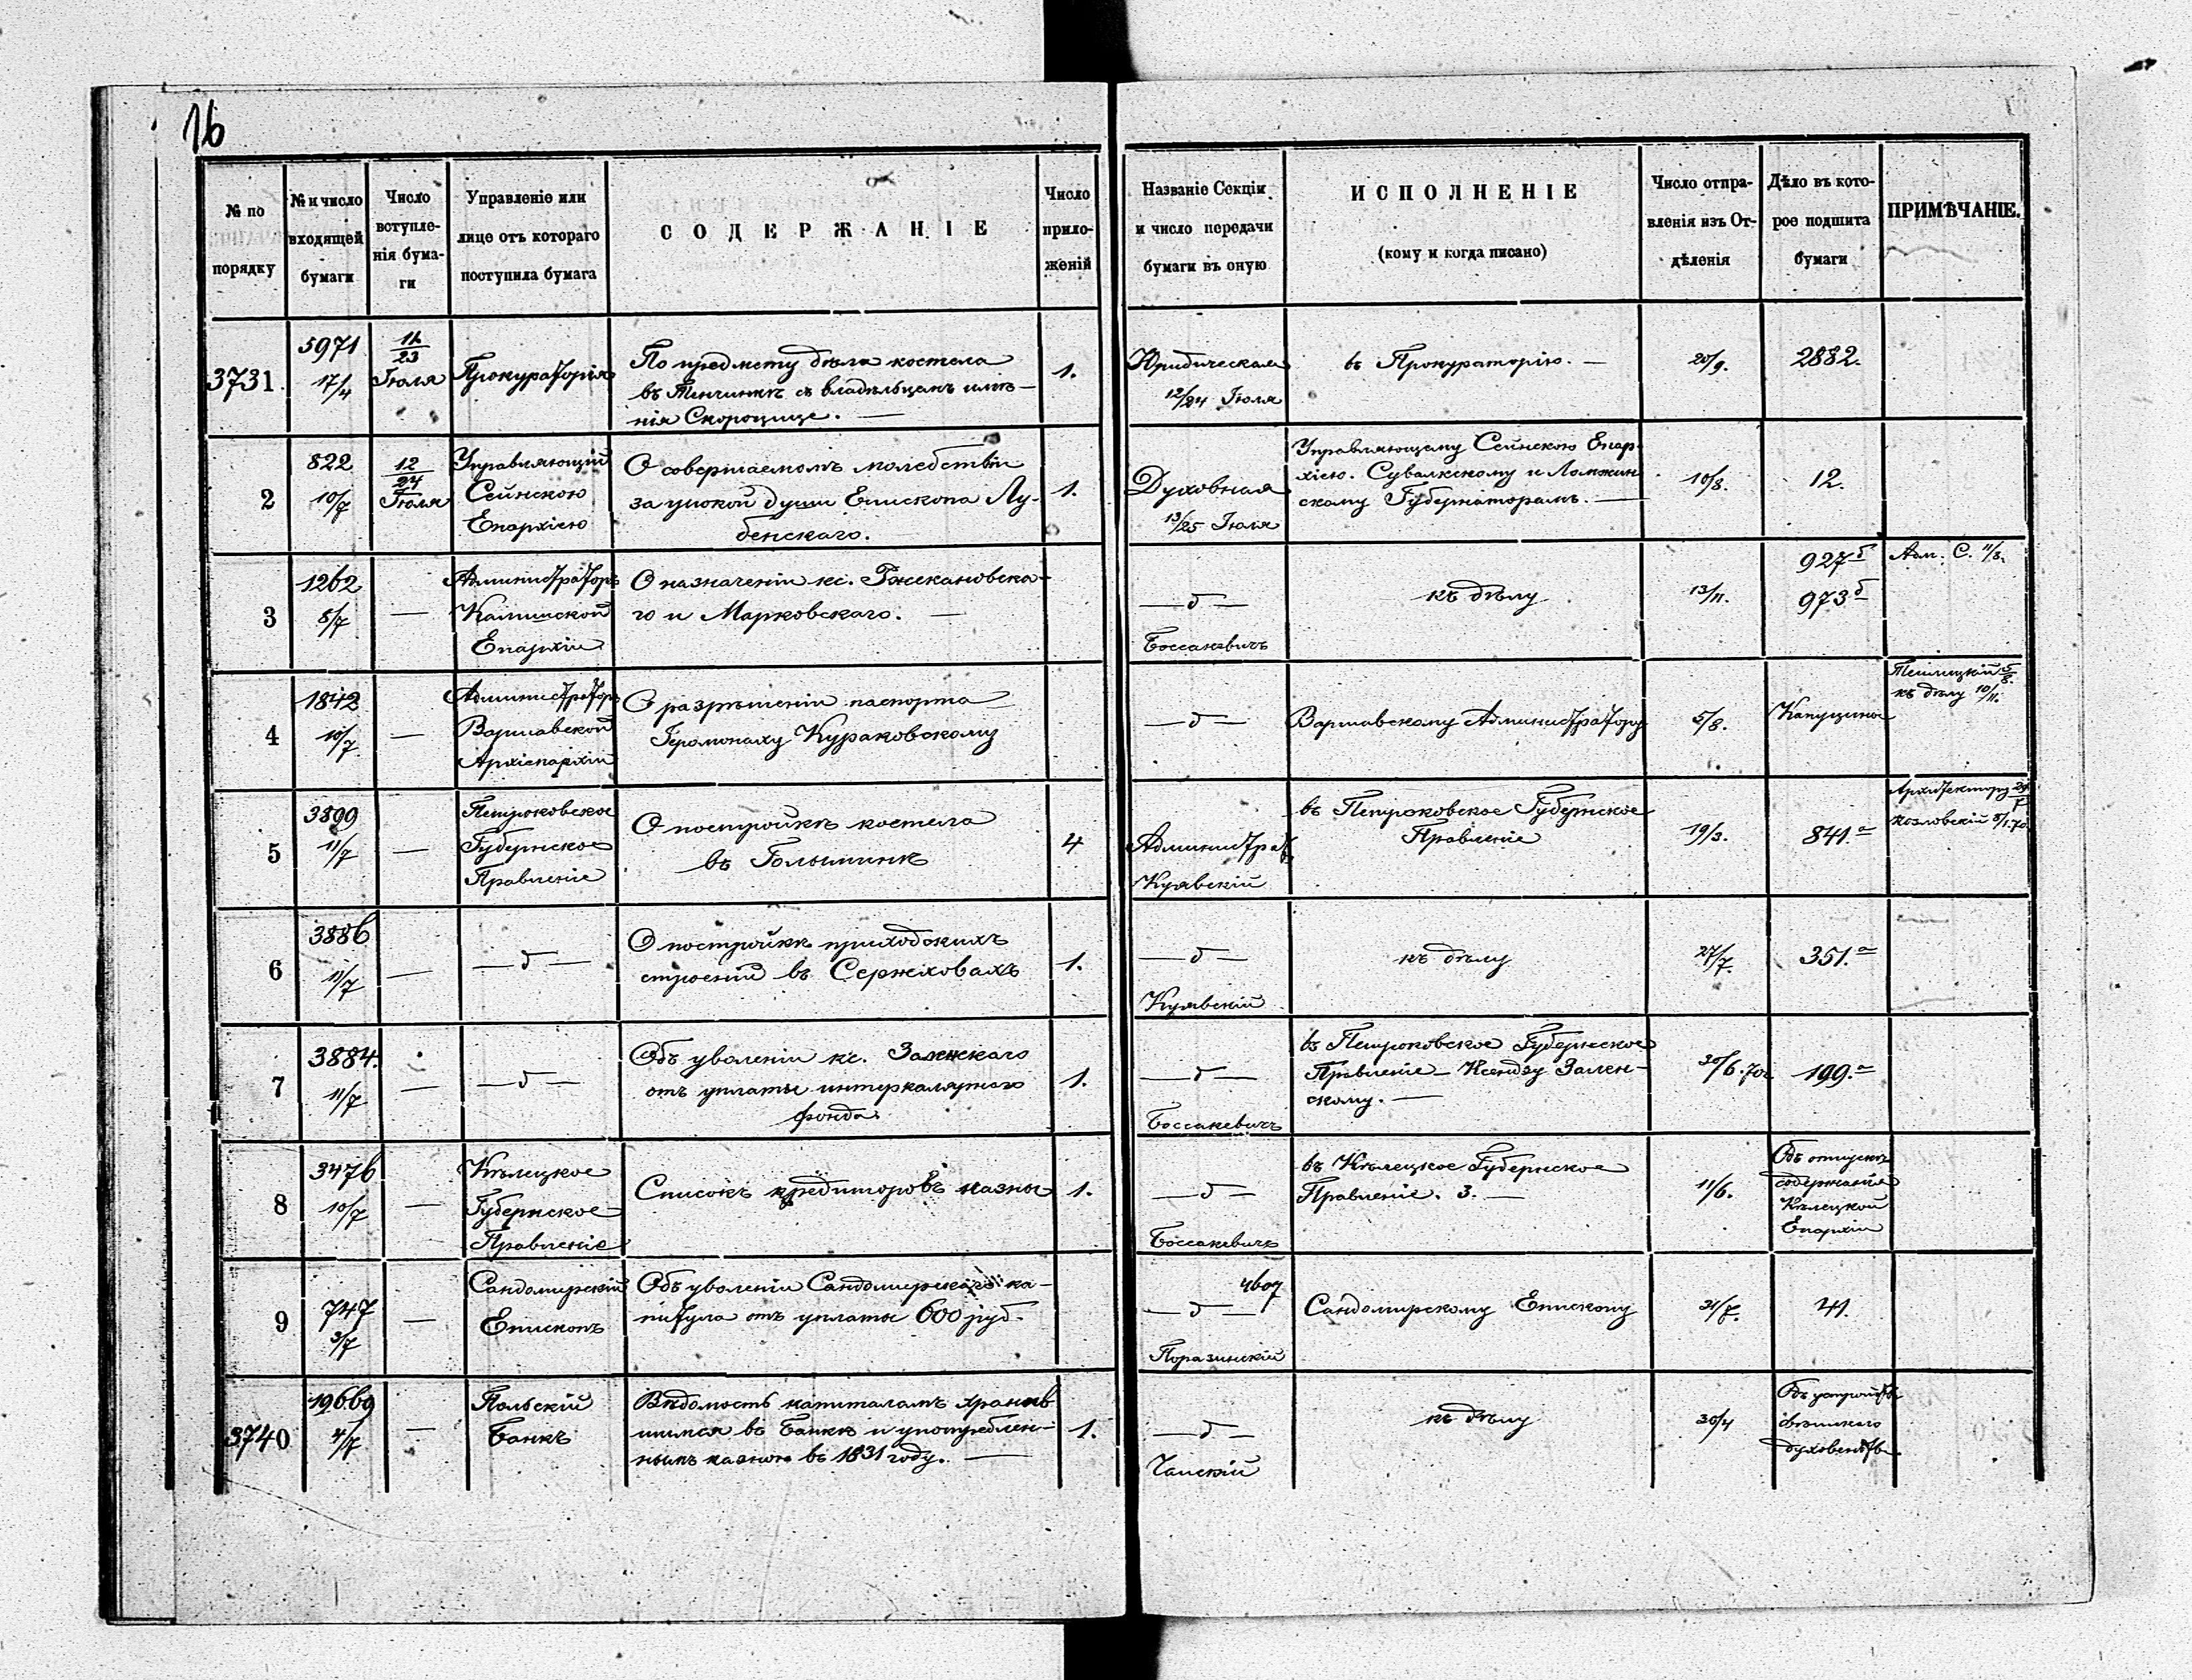 16
№ по порядку
№ и число входящей бумаги
Число вступле-
нія бума-
ги
Управленіе или
лице отъ котораго
поступила бумага
СОДЕРЖАНІЕ
Число
прило-
женій
Названіе Секціи
и число передачи
бумаги въ оную
ИСПОЛНЕНІЕ
(кому и когда писано)
Число отпра-
вленія изъ От-
дѣленія
Дѣло въ кото-
рое подшита
бумаги
ПРИМѢЧАНІЕ.
3731.
5971
17/4
11/23
Іюля
Прокураторія
По предмету дѣла костела
въ съ владѣльцемъ имѣ-
нія Скороцице. —
1.
Юридическая
12/24 Іюля
въ Прокураторію. —
20/9.
2882.
2
822
10/7
12/24
Іюля
Управляющій
Сейнскою
Епархіею
О совершаемомъ молебствіи
за упокой души Епископа Лу-
бенскаго.
1.
Духовная
13/25 Іюля
Управляющему Сейнскою Епар-
хіею. Сувалкскому и Ломжин
скому Губернаторамъ. —
10/8.
12.
3
1262
8/7
—
Администраторъ
Калишской
Епархіи
О назначеніи кс. Гжекановска-
го и Марковскаго. —
— д —
Боссакевичъ
къ дѣлу
13/11.
927 б
973 б
Адм. С. 11/8.
4
1842
10/7
—
Администраторъ
Варшавской
Архіепархіи
О разрѣшеніи паспорта
Іеромонаху Кураковскому
— д —
Варшавскому Администратору
5/8.
Капуцины
къ дѣлу 10/11.
5
3899
11/7
—
Петроковское
Губернское
Правленіе
О постройкѣ костела
въ Голыминѣ
4
Администрат
Куявскій
въ Петроковское Губернское
Правленіе
19/3.
841. а
Архитектору
Козловскій 8/1.70.
6
3886
11/7
—
— д —
О постройкѣ приходскихъ
строеній въ Сержховахъ
1.
— д —
Куявскій
къ дѣлу
27/7.
351. а
7
3884.
11/7
—
— д —
Объ уволеніи кс. Заленскаго
отъ уплаты интеркалярнаго
фонда.
1.
— д —
Боссакевичъ
въ Петроковское Губернское
Правленіе — Ксендзу Зален-
скому. —
30/6. 70.
199. а
8
3476
10/7
—
Кѣлецкое
Губернское
Правленіе
Списокъ кредиторовъ казны
1.
— д —
Боссакевичъ
въ Кѣлецкое Губернское
Правленіе. 3. —
11/6.
Объ отпускѣ
содержанія
Кѣлецкой
Епархіи
9
747
3/7
—
Сандомирскій
Епископъ
Объ уволеніи Сандомирскаго ка-
питула отъ уплаты 600 руб.
4607
— д —
Поразинскій
Сандомирскому Епископу
31/7.
41.
3740
19669
4/7
—
Польскій
Банкъ
Вѣдомость капиталамъ хранив
шимся въ Банкѣ и употреблен-
нымъ казною въ 1831 году. —
1.
— д —
Чапскій
къ дѣлу
30/4
Объ устройствѣ
свѣтскаго
духовенства